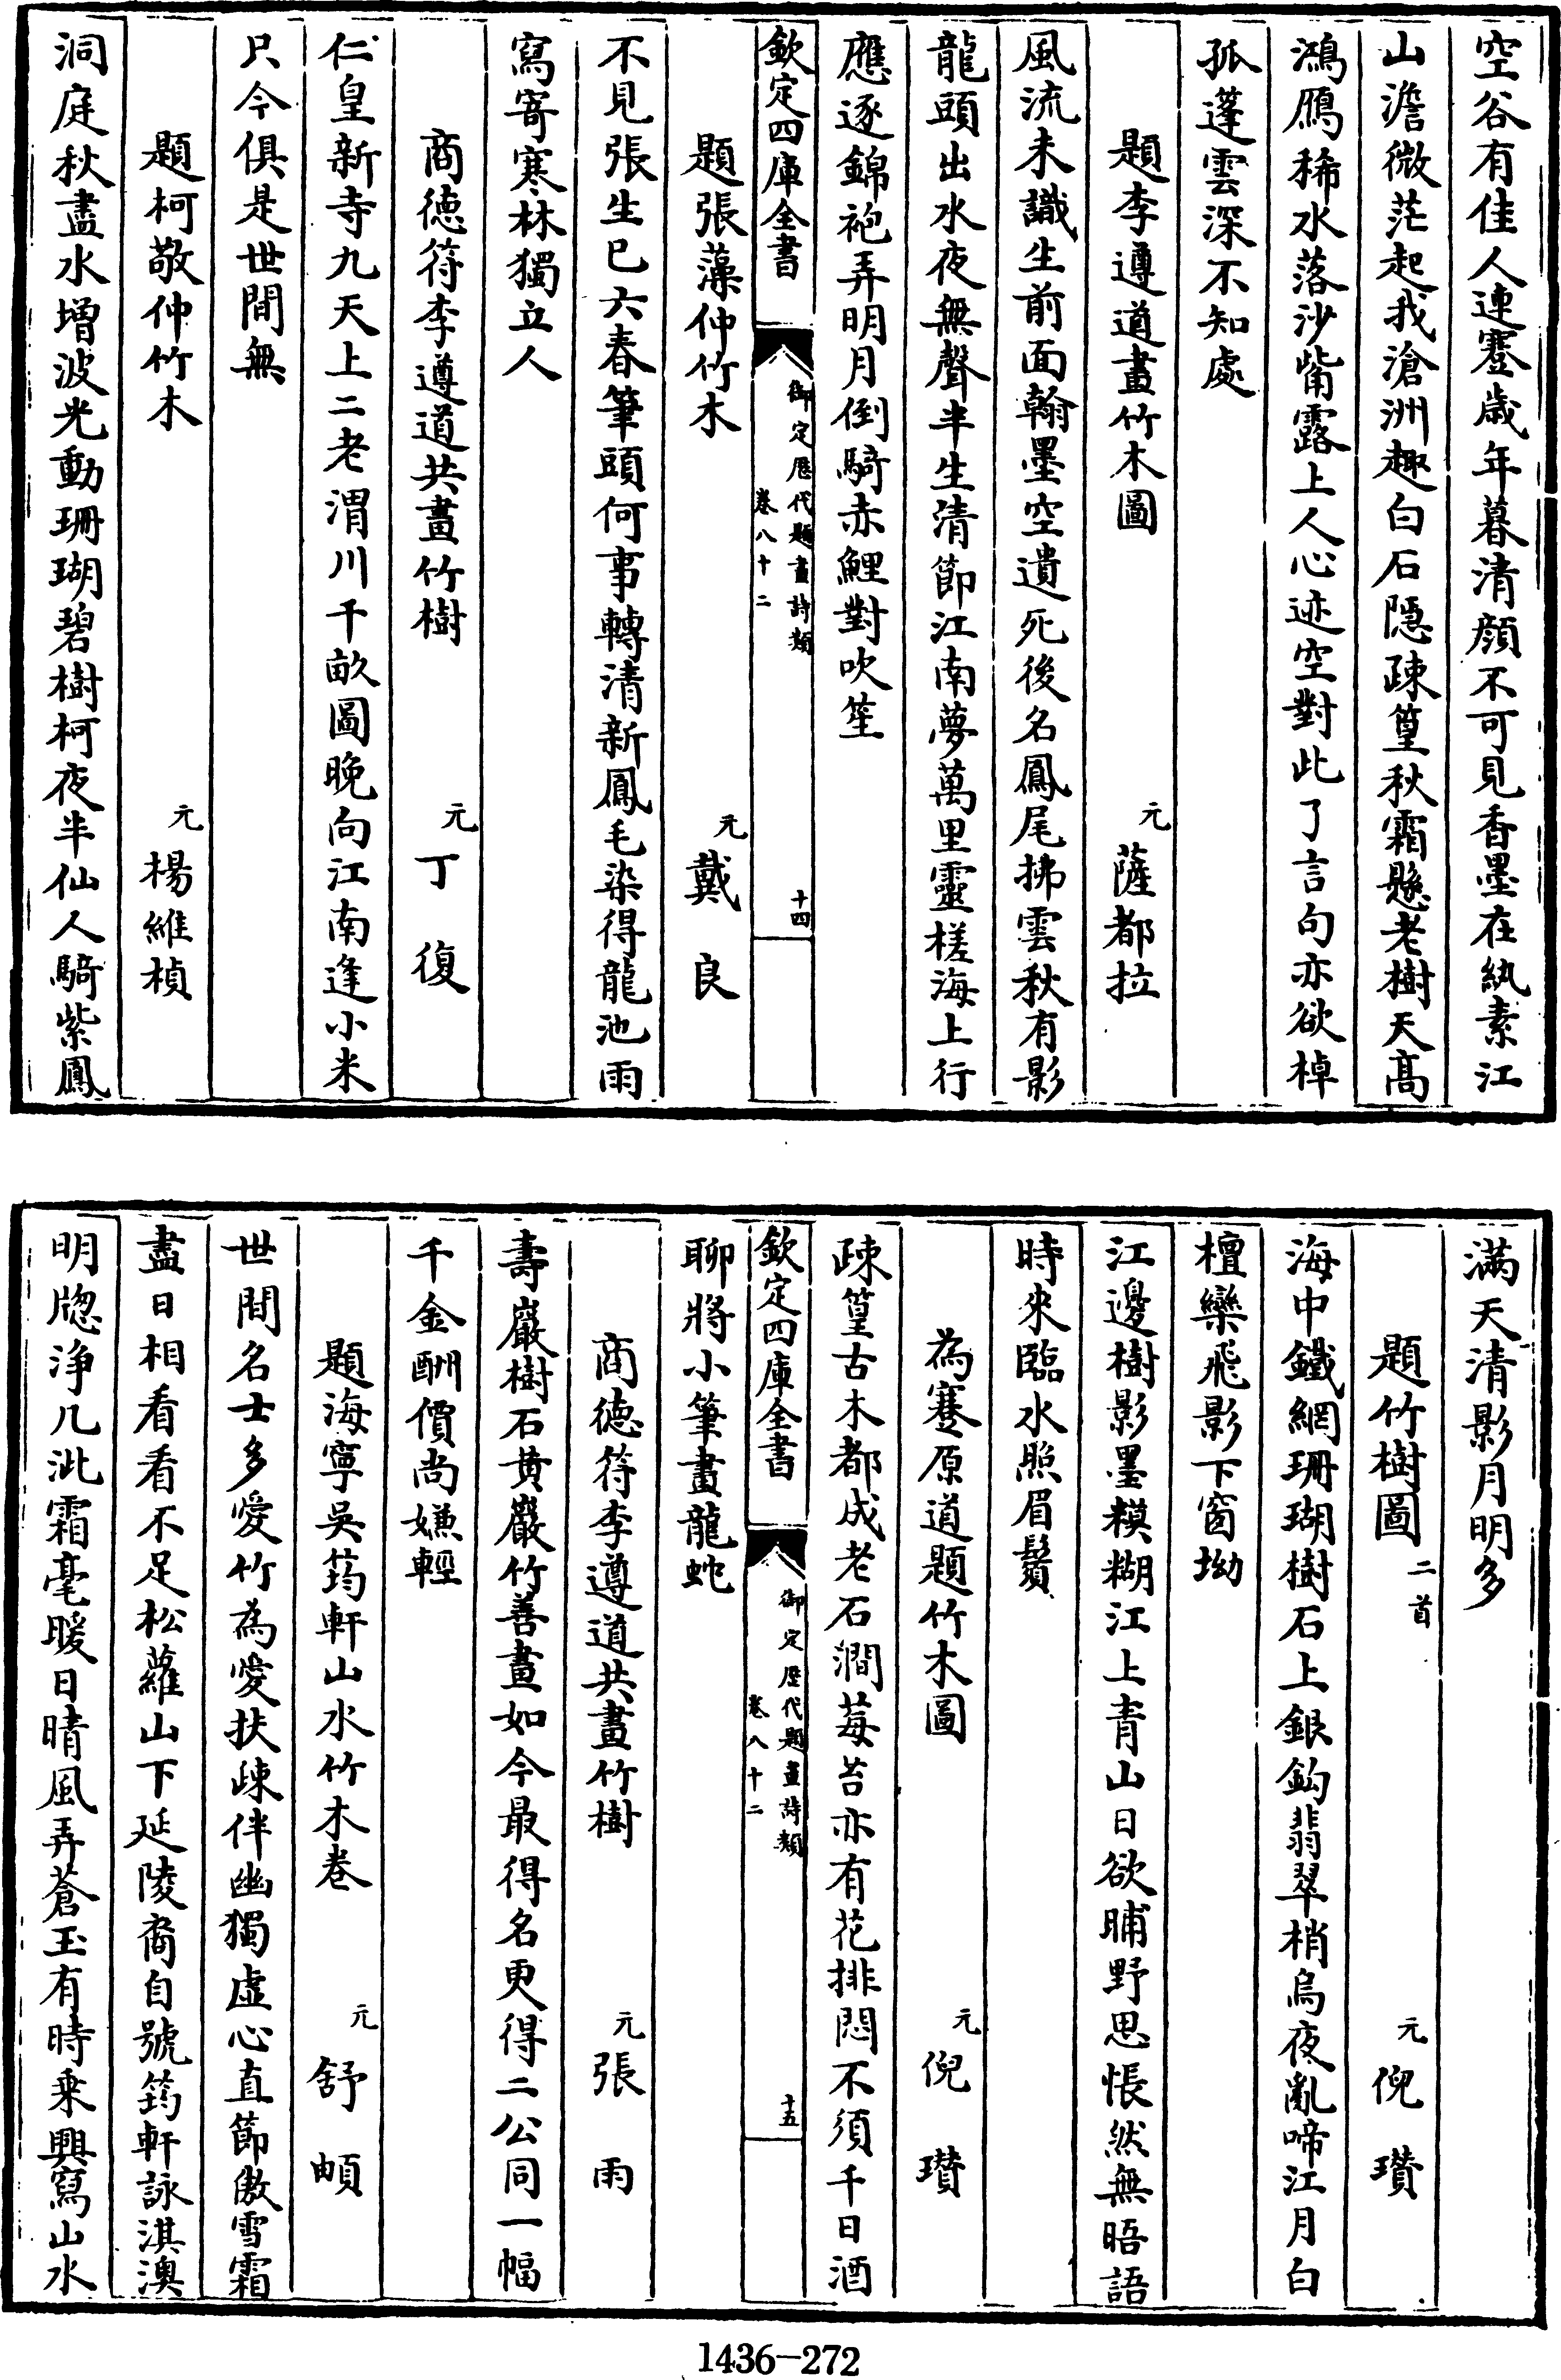 空谷有佳人連蹇歳年暮清顔不可見香墨在紈素江
山澹微茫起我滄洲趣白石隠疎篁秋霜懸老樹天髙
鴻鴈稀水落沙觜露上人心迹空對此了言句亦欲棹
孤蓬雲深不知處
題李遵道畫竹木圖　元薩都拉
風流未識生前面翰墨空遺死後名鳳尾拂雲秋有影
龍頭出水夜無聲半生清節江南夢萬里靈槎海上行
應逐錦袍弄明月倒騎赤鯉對吹笙
欽定四庫全書　御定歴代題畫詩類　卷八十二　十四
題張藻仲竹木　元戴良
不見張生已六春筆頭何事轉清新鳳毛染得龍池雨
寫寄寒林獨立人
商徳符李遵道共畫竹樹　元丁復
仁皇新寺九天上二老渭川千畝圖晚向江南逢小米
只今俱是世間無
題柯敬仲竹木　元楊維楨
洞庭秋盡水增波光動珊瑚碧樹柯夜半仙人騎紫鳳
滿天清影月明多
題竹樹圖二首　元倪瓚
海中鐵網珊瑚樹石上銀鈎翡翠梢烏夜亂啼江月白
檀欒飛影下窗坳
江邊樹影墨糢糊江上青山日欲晡野思悵然無晤語
時來臨水照眉鬚
為蹇原道題竹木圖　元倪瓚
疎篁古木都成老石澗莓苔亦有花排悶不須千日酒
欽定四庫全書　御定歴代題畫詩類　卷八十二　十五
聊將小筆畫龍蛇
商徳符李遵道共畫竹樹　元張雨
壽巖樹石黄巖竹善畫如今最得名更得二公同一幅
千金酬價尚嫌輕
題海寧吳筠軒山水竹木卷　元舒頔
世間名士多愛竹為愛扶疎伴幽獨虛心直節傲雪霜
盡日相看看不足松蘿山下延陵裔自號筠軒詠淇澳
明牕淨几泚霜毫暖日晴風弄蒼玉有時乗興寫山水
1436-272